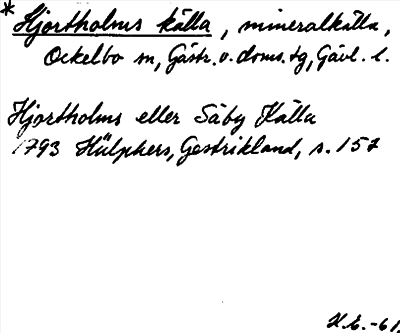 * Hjortholms källa, mineralkälla,
Ockelbo sn, Gästr. v. doms. tg, Gävl. l.
Hjortholms eller Säby Källa
1793 Hülphers, Gestrikland, s. 157
H.E. -61.